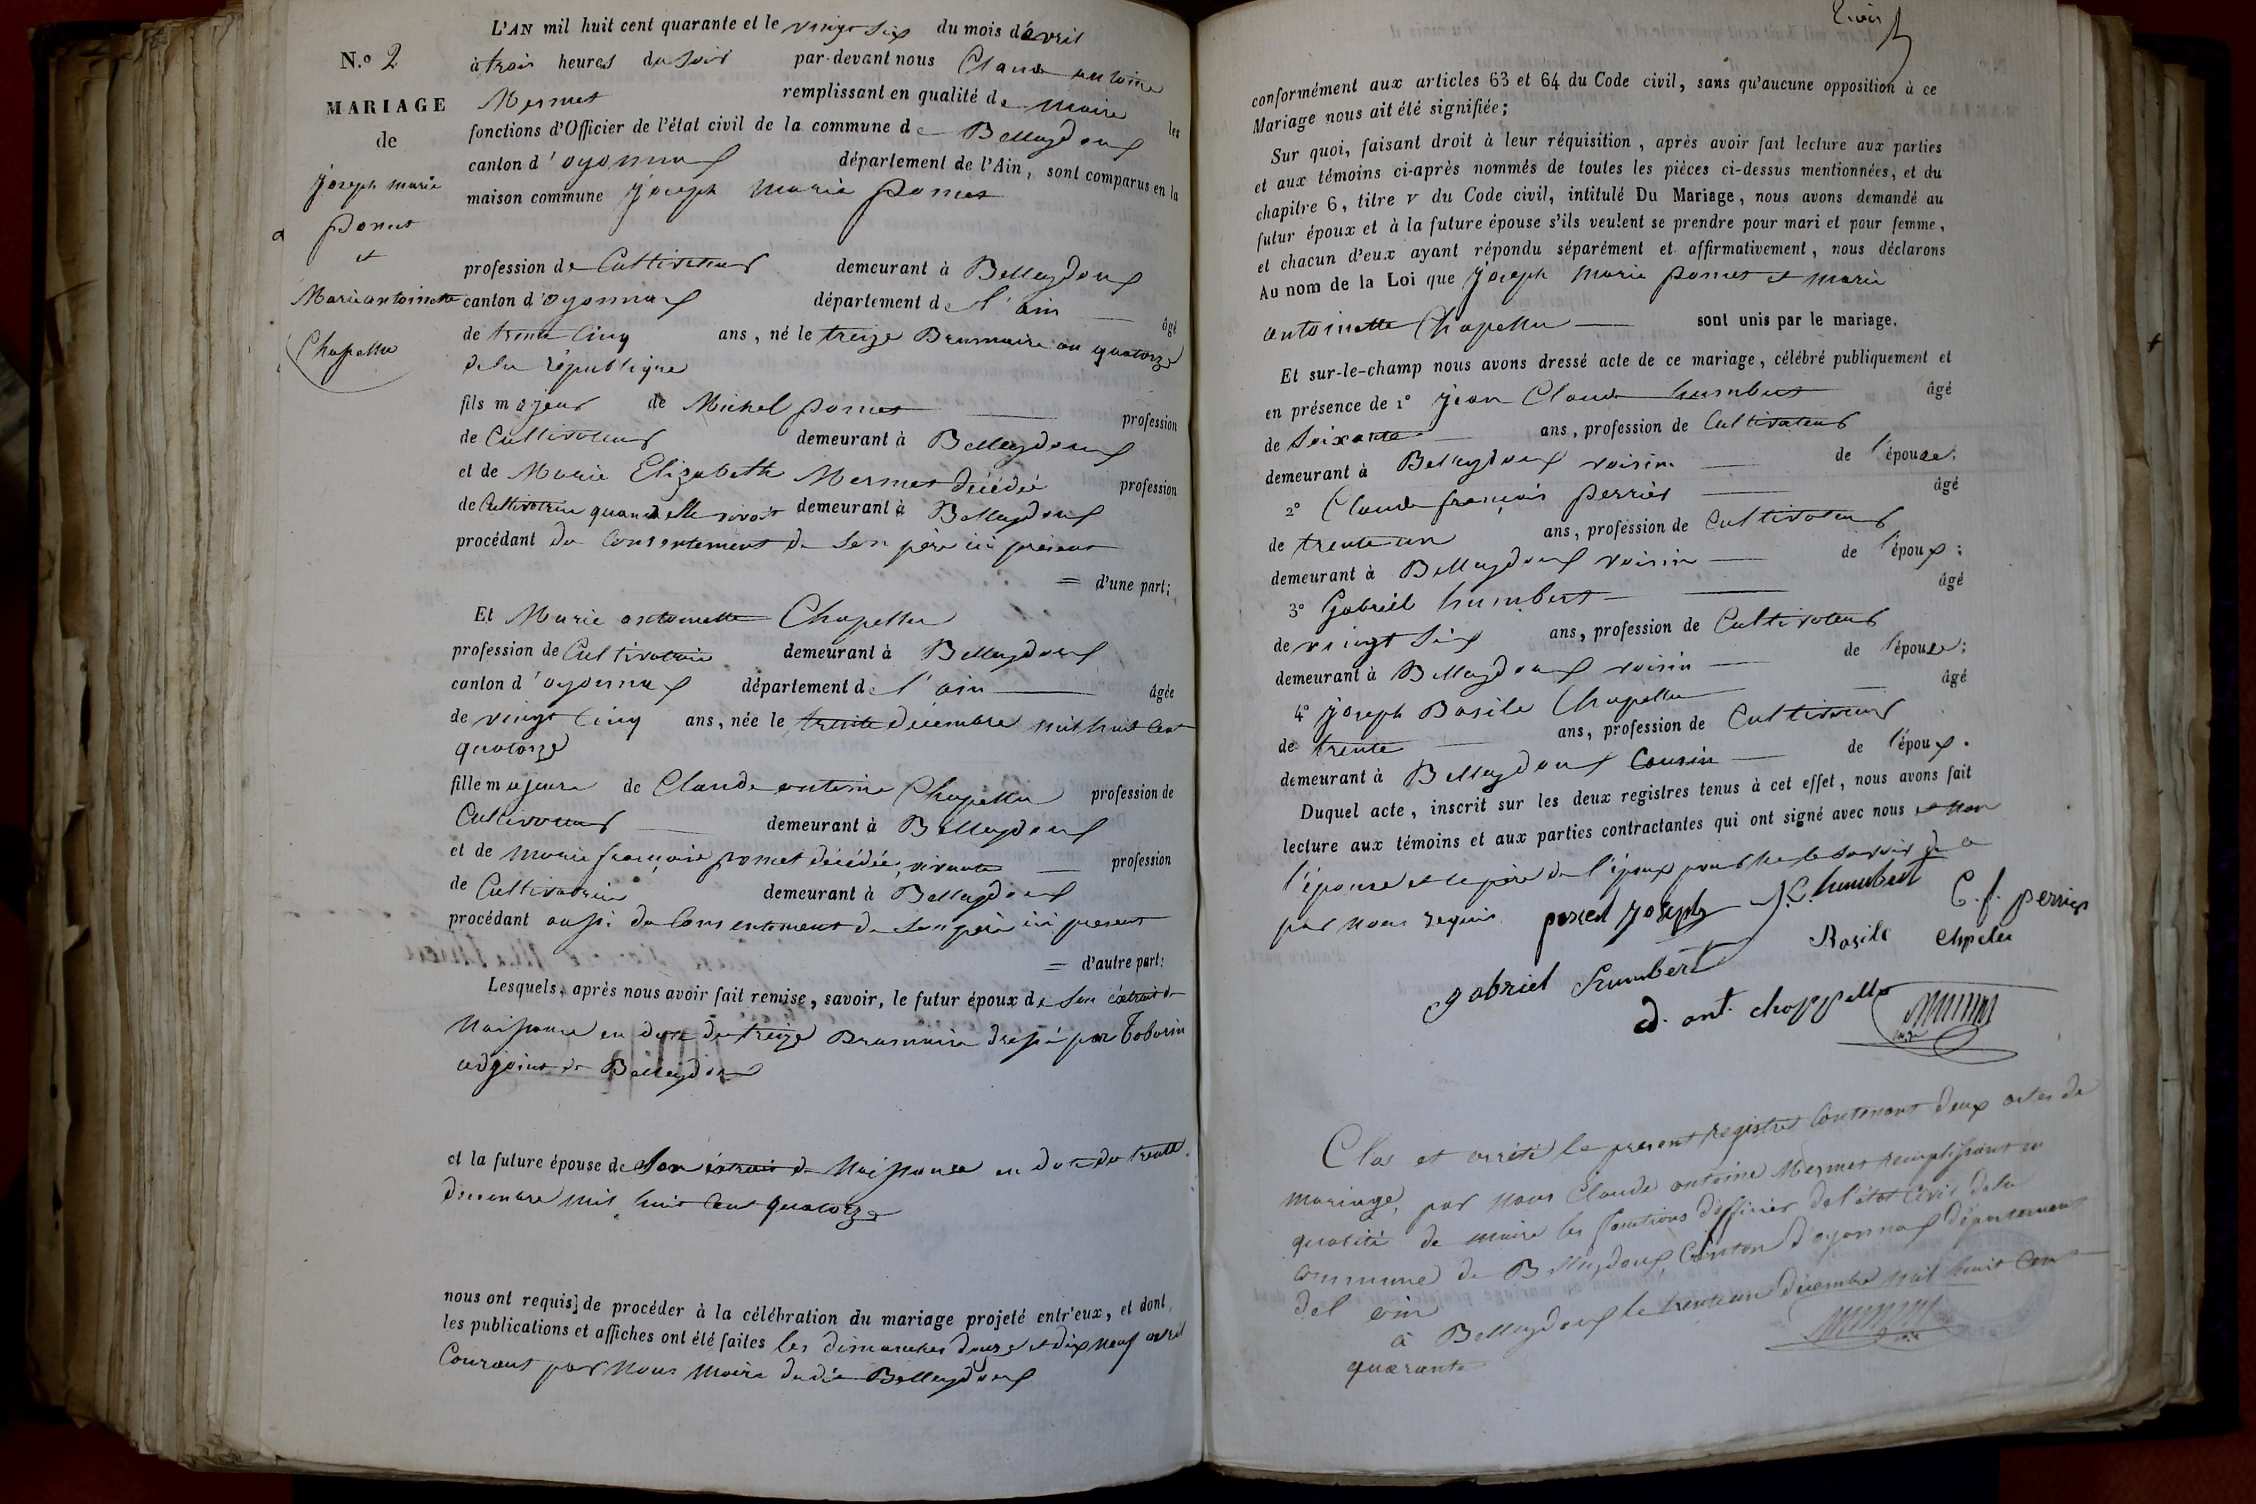 N.o 2
MARIAGE
de
Joseph marie
Poncet
et
Marie antoinette
Chapellu
L'AN mil huit cent quarante et le vingt six du mois d'avril
à trois heures du soir par-devant nous Claude antoine
Mermet remplissant en qualité de Maire les
fonctions d'Officier de l'état civil de la commune de Belleydoux
canton d'oyonnax département de l'Ain, sont comparus en la
maison commune Joseph Marie Poncet
profession de Cultivateur demeurant à Belleydoux
canton d'oyonnax département de l'ain âgé
de trente cinq ans, né le treize Brumaire an quatorze
de la république
fils majeur de Michel Poncet profession
de Cultivateur demeurant à Belleydoux
et de Marie Elizabeth Mermet décédée profession
de Cultivatrice quand elle vivait demeurant à Belleydoux
procédant du Consentement de Son père ici présent
= d'une part;
Et Marie antoinette Chapellu
profession de Cultivatrice demeurant à Belleydoux
canton d'oyonnax département de l'ain âgée
de vingt cinq ans, née le trente décembre mil huit Cent
quatorze
fille majeure de Claude antoine Chapellu profession de
Cultivateur demeurant à Belleydoux
et de Marie françoise poncet décédée, vivante profession
de Cultivatrice demeurant à Belleydoux
procédant aussi du Consentement de Son père ici présent
= d'autre part:
Lesquels, après nous avoir fait remise, savoir, le futur époux de Son éxtrait de
Naissance en date du treize Brumaire dressé par Taborin
adjoint de Belleydoux
et la future épouse de Son éxtrait de Naissance en date du trente
décembre mil huit Cent quatorze
nous ont requis de procéder à la célébration du mariage projeté entr'eux, et dont
les publications et affiches ont été faites les dimanches douze et dix Neuf avril
Courant par Nous Maire dudit Belleydoux
conformément aux articles 63 et 64 du Code civil, sans qu'aucune opposition à ce
Mariage nous ait été signifiée;
Sur quoi, faisant droit à leur réquisition, après avoir fait lecture aux parties
et aux témoins ci-après nommés de toutes les pièces ci-dessus mentionnées, et du
chapitre 6, titre v du Code civil, intitulé Du Mariage, nous avons demandé au
futur époux et à la future épouse s'ils veulent se prendre pour mari et pour femme,
et chacun d'eux ayant répondu séparément et affirmativement, nous déclarons
Au nom de la Loi que Joseph Marie Poncet et Marie
antoinette Chapellu sont unis par le mariage.
Et sur-le-champ nous avons dressé acte de ce mariage, célébré publiquement et
en présence de 1o Jean Claude humbert âgé
de Soixante ans, profession de Cultivateur
demeurant à Belleydoux voisin de l'épouse;
2o Claude françois Perrier âgé
de trente un ans, profession de Cultivateur
demeurant à Belleydoux voisin de l'époux;
3o Gabriel humbert âgé
de vingt Six ans, profession de Cultivateur
demeurant à Belleydoux voisin de l'épouse;
4o Joseph Basile Chapellu âgé
de trente ans, profession de Cultivateur
demeurant à Belleydoux Cousin de l'époux.
Duquel acte, inscrit sur les deux registres tenus à cet effet, nous avons fait
lecture aux témoins et aux parties contractantes qui ont signé avec nous et Non
l'épouse et le père de l'époux pour Ne le Savoir de ce
par Nous requis poncet Joseph J. C. humbert C. f. perrier
gabriel humbert Basile
C. ant. chappellu
Clos et arrêté le present registre Contenant deux actes de
Mariage, par Nous Claude antoine Mermet remplissant en
qualité de maire les fonctions d'officier de l'état Civil de la
Commune de Belleydoux Canton d'oyonnax département
del ain
à Belleydoux le trente un décembre Mil huit Cent
quarante